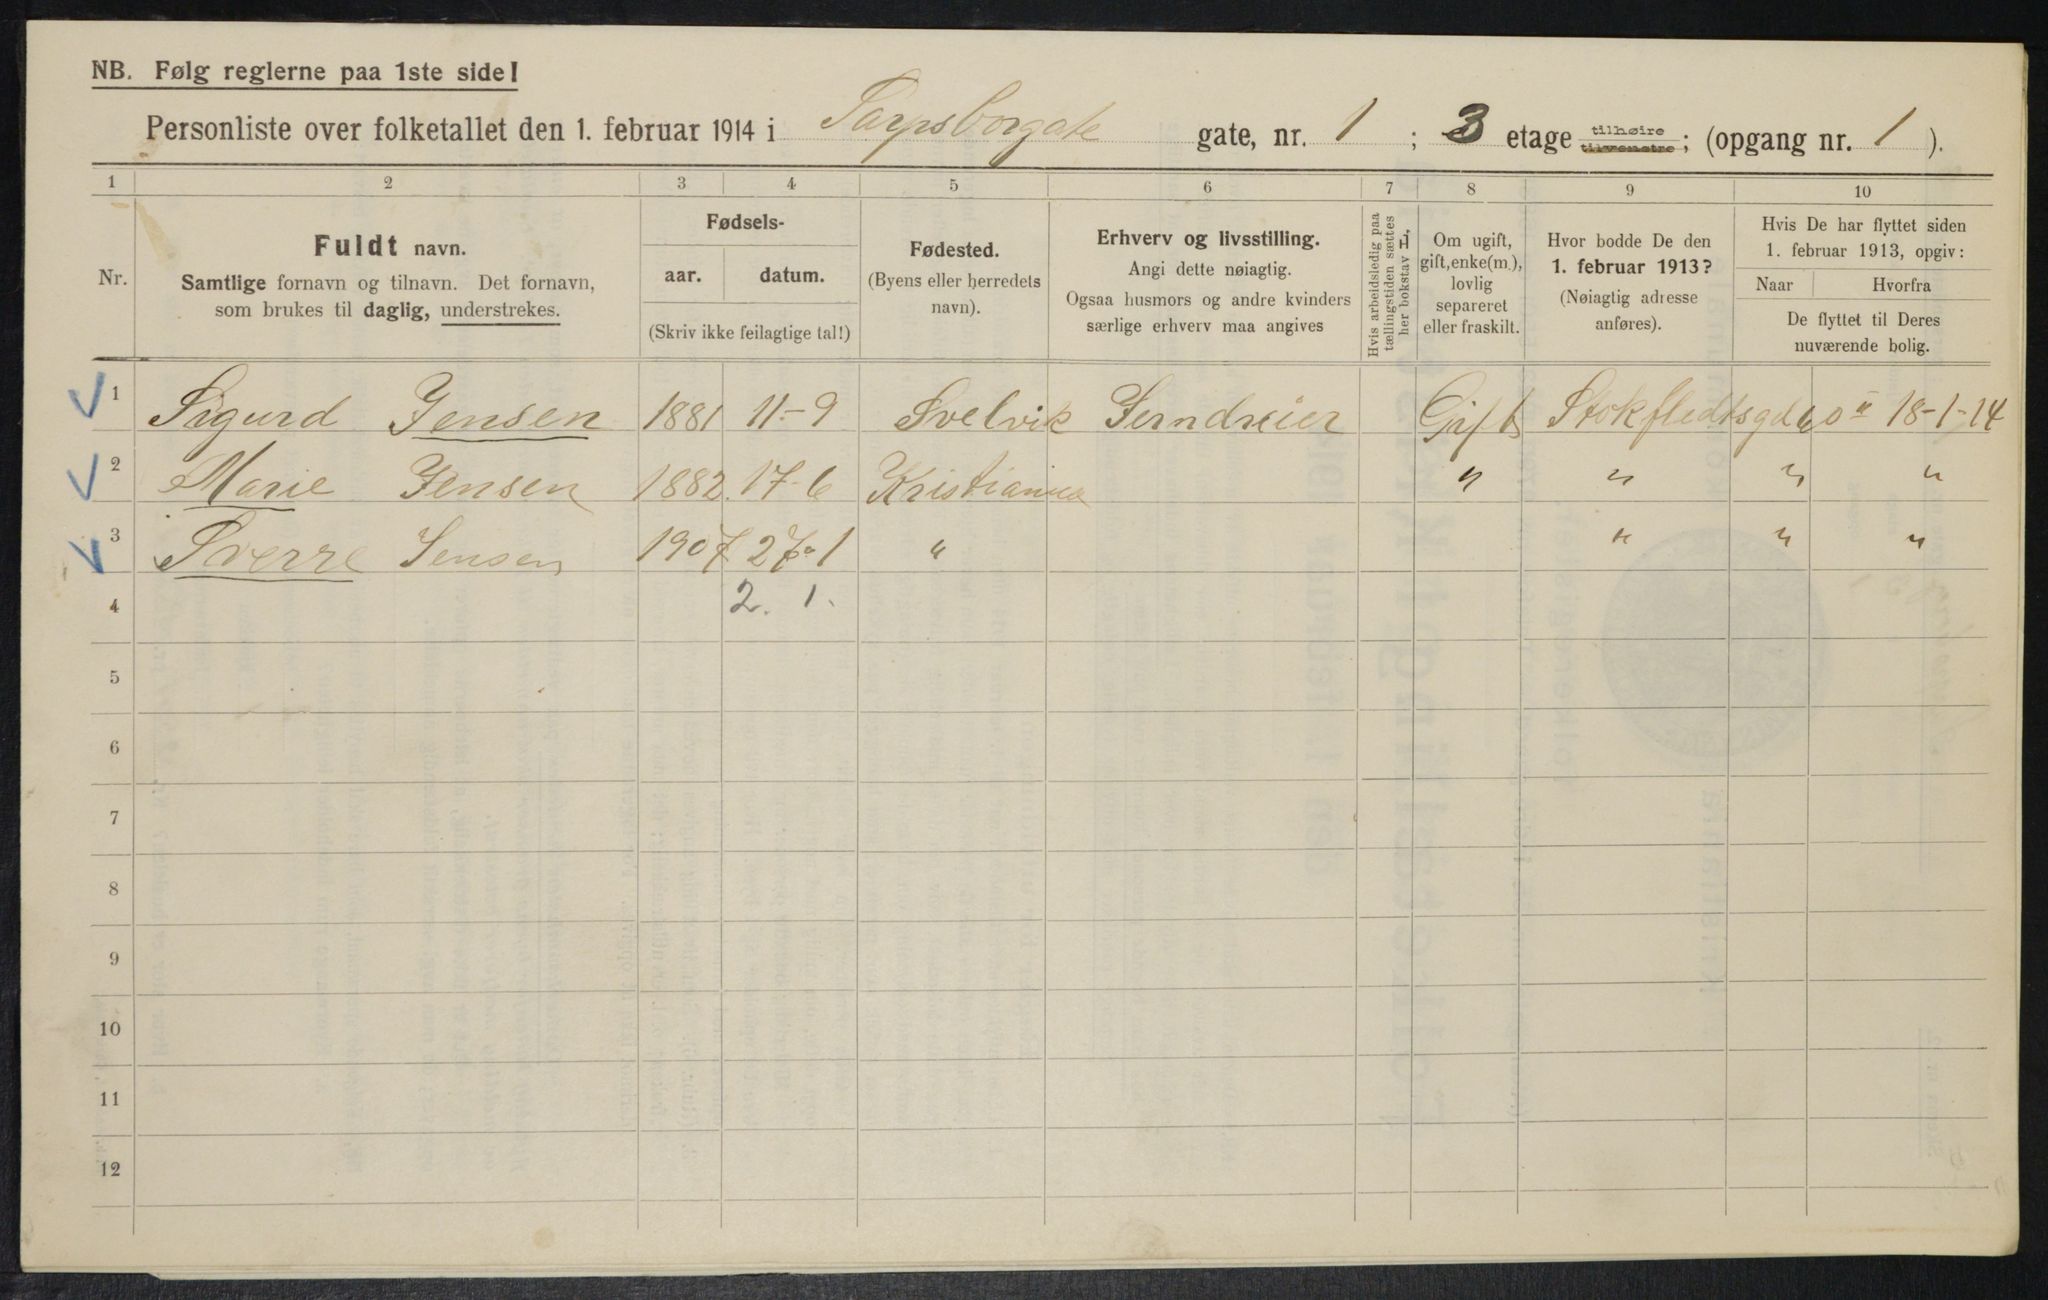 NB. Følg reglerne paa 1ste side!
Personliste over folketallet den 1. februar 1914 i Sarpsborgate gate, nr. 1 ; 3 etage tilhøire tilvenstre; (opgang nr. 1 ).
1 2 3 4 5 6 7 8 9 10
Nr.
Fuldt navn.
Samtlige fornavn og tilnavn. Det fornavn,
som brukes til daglig, understrekes.
Fødsels-
aar. datum.
(Skriv ikke feilagtige tal!)
Fødested.
(Byens eller herredets
navn).
Erhverv og livsstilling.
Angi dette nøiagtig.
Ogsaa husmors og andre kvinders
særlige erhverv maa angives
Hvis arbeidsledig paa
tællingstiden sættes
her bokstav L,
Om ugift,
gift, enke(m.),
lovlig
separeret
eller fraskilt.
Hvor bodde De den
1. februar 1913?
(Nøiagtig adresse
anføres).
Hvis De har flyttet siden
1. februar 1913, opgiv:
Naar Hvorfra
De flyttet til Deres
nuværende bolig.
1 Sigurd Jensen 1881 11-9 Svelvik Jerndreier Gift Stokfledtsgd 60 II 18-1-14
2 Marie Jensen 1882 17-6 Kristiania " " " "
3 Sverre Jensen 1907 27-1 " " " "
4 2. 1.
5
6
7
8
9
10
11
12